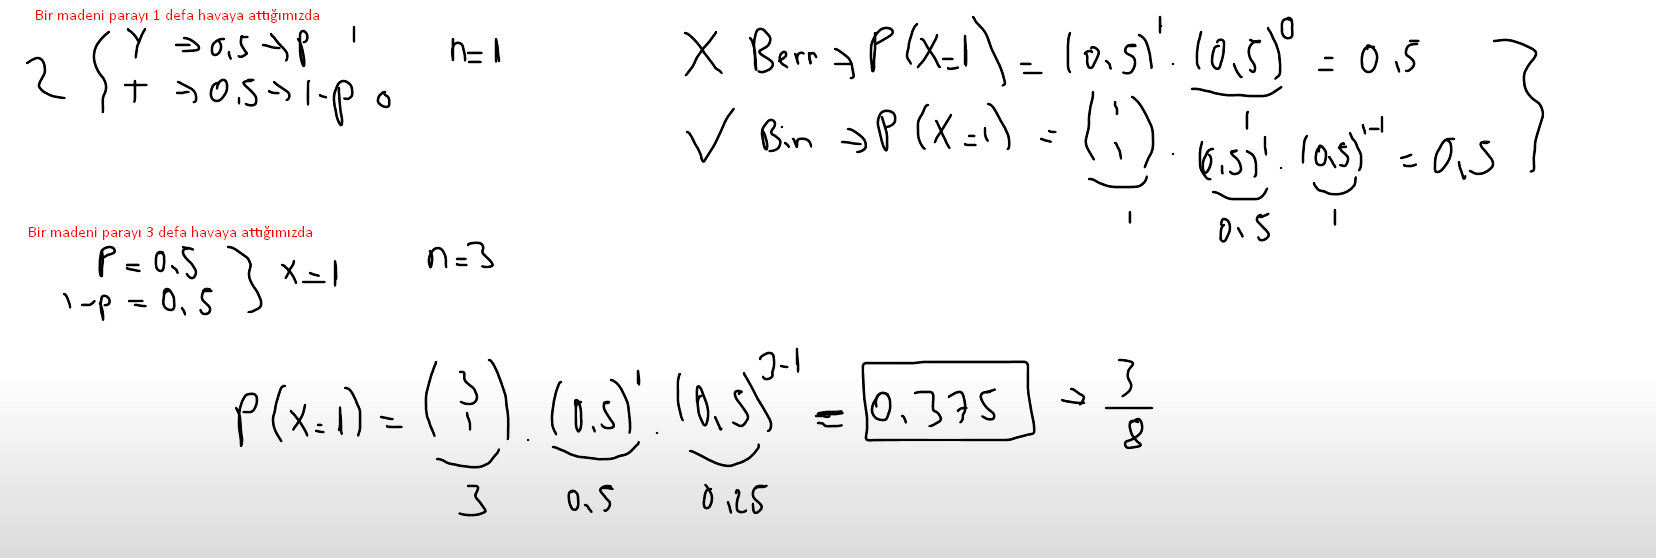 Bir madeni parayı 1 defa havaya attığımızda
Y → 0,5 → p 1
T → 0,5 → 1-p 0
2
n=1
X Bern → P(X=1) = (0,5)¹ · (0,5)⁰ = 0,5
1
✓ Bin → P(X=1) = (1 1) · (0,5)¹ · (0,5)¹⁻¹ = 0,5
1 0,5 1
Bir madeni parayı 3 defa havaya attığımızda
P = 0,5
1-p = 0,5
x=1
n=3
P(X=1) = (3 1) · (0,5)¹ · (0,5)³⁻¹ = 0,375 → 3/8
3 0,5 0,25